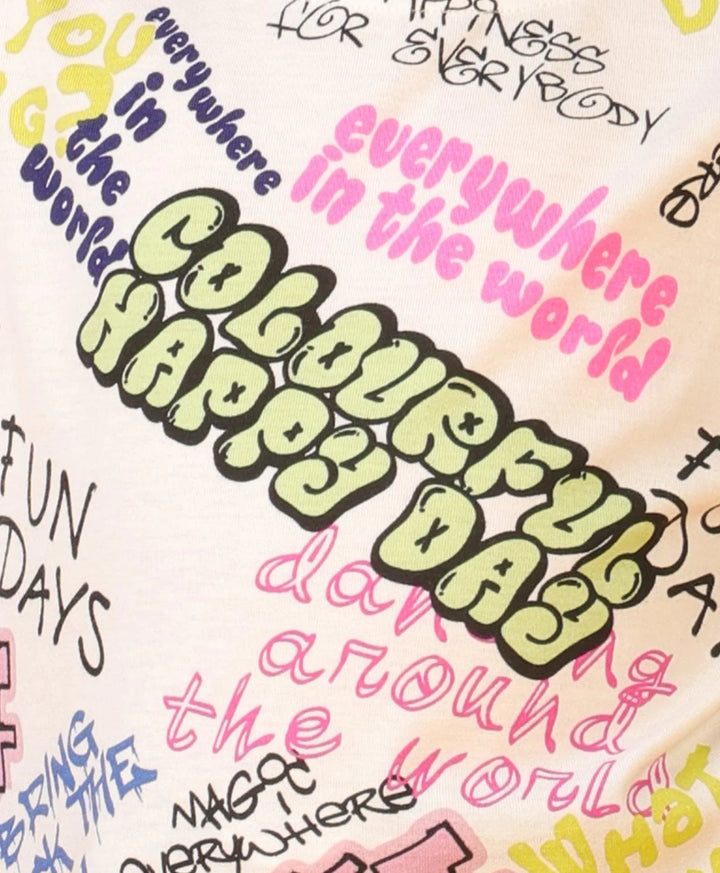 YOU
everywhere
in
the
world
FOR
EVERYBODY
everywhere
in the world
COLOURFUL
HAPPY DAY
FUN
DAYS
around
the world
BRING
THE
MAGIC
EVERYWHERE
WHAT